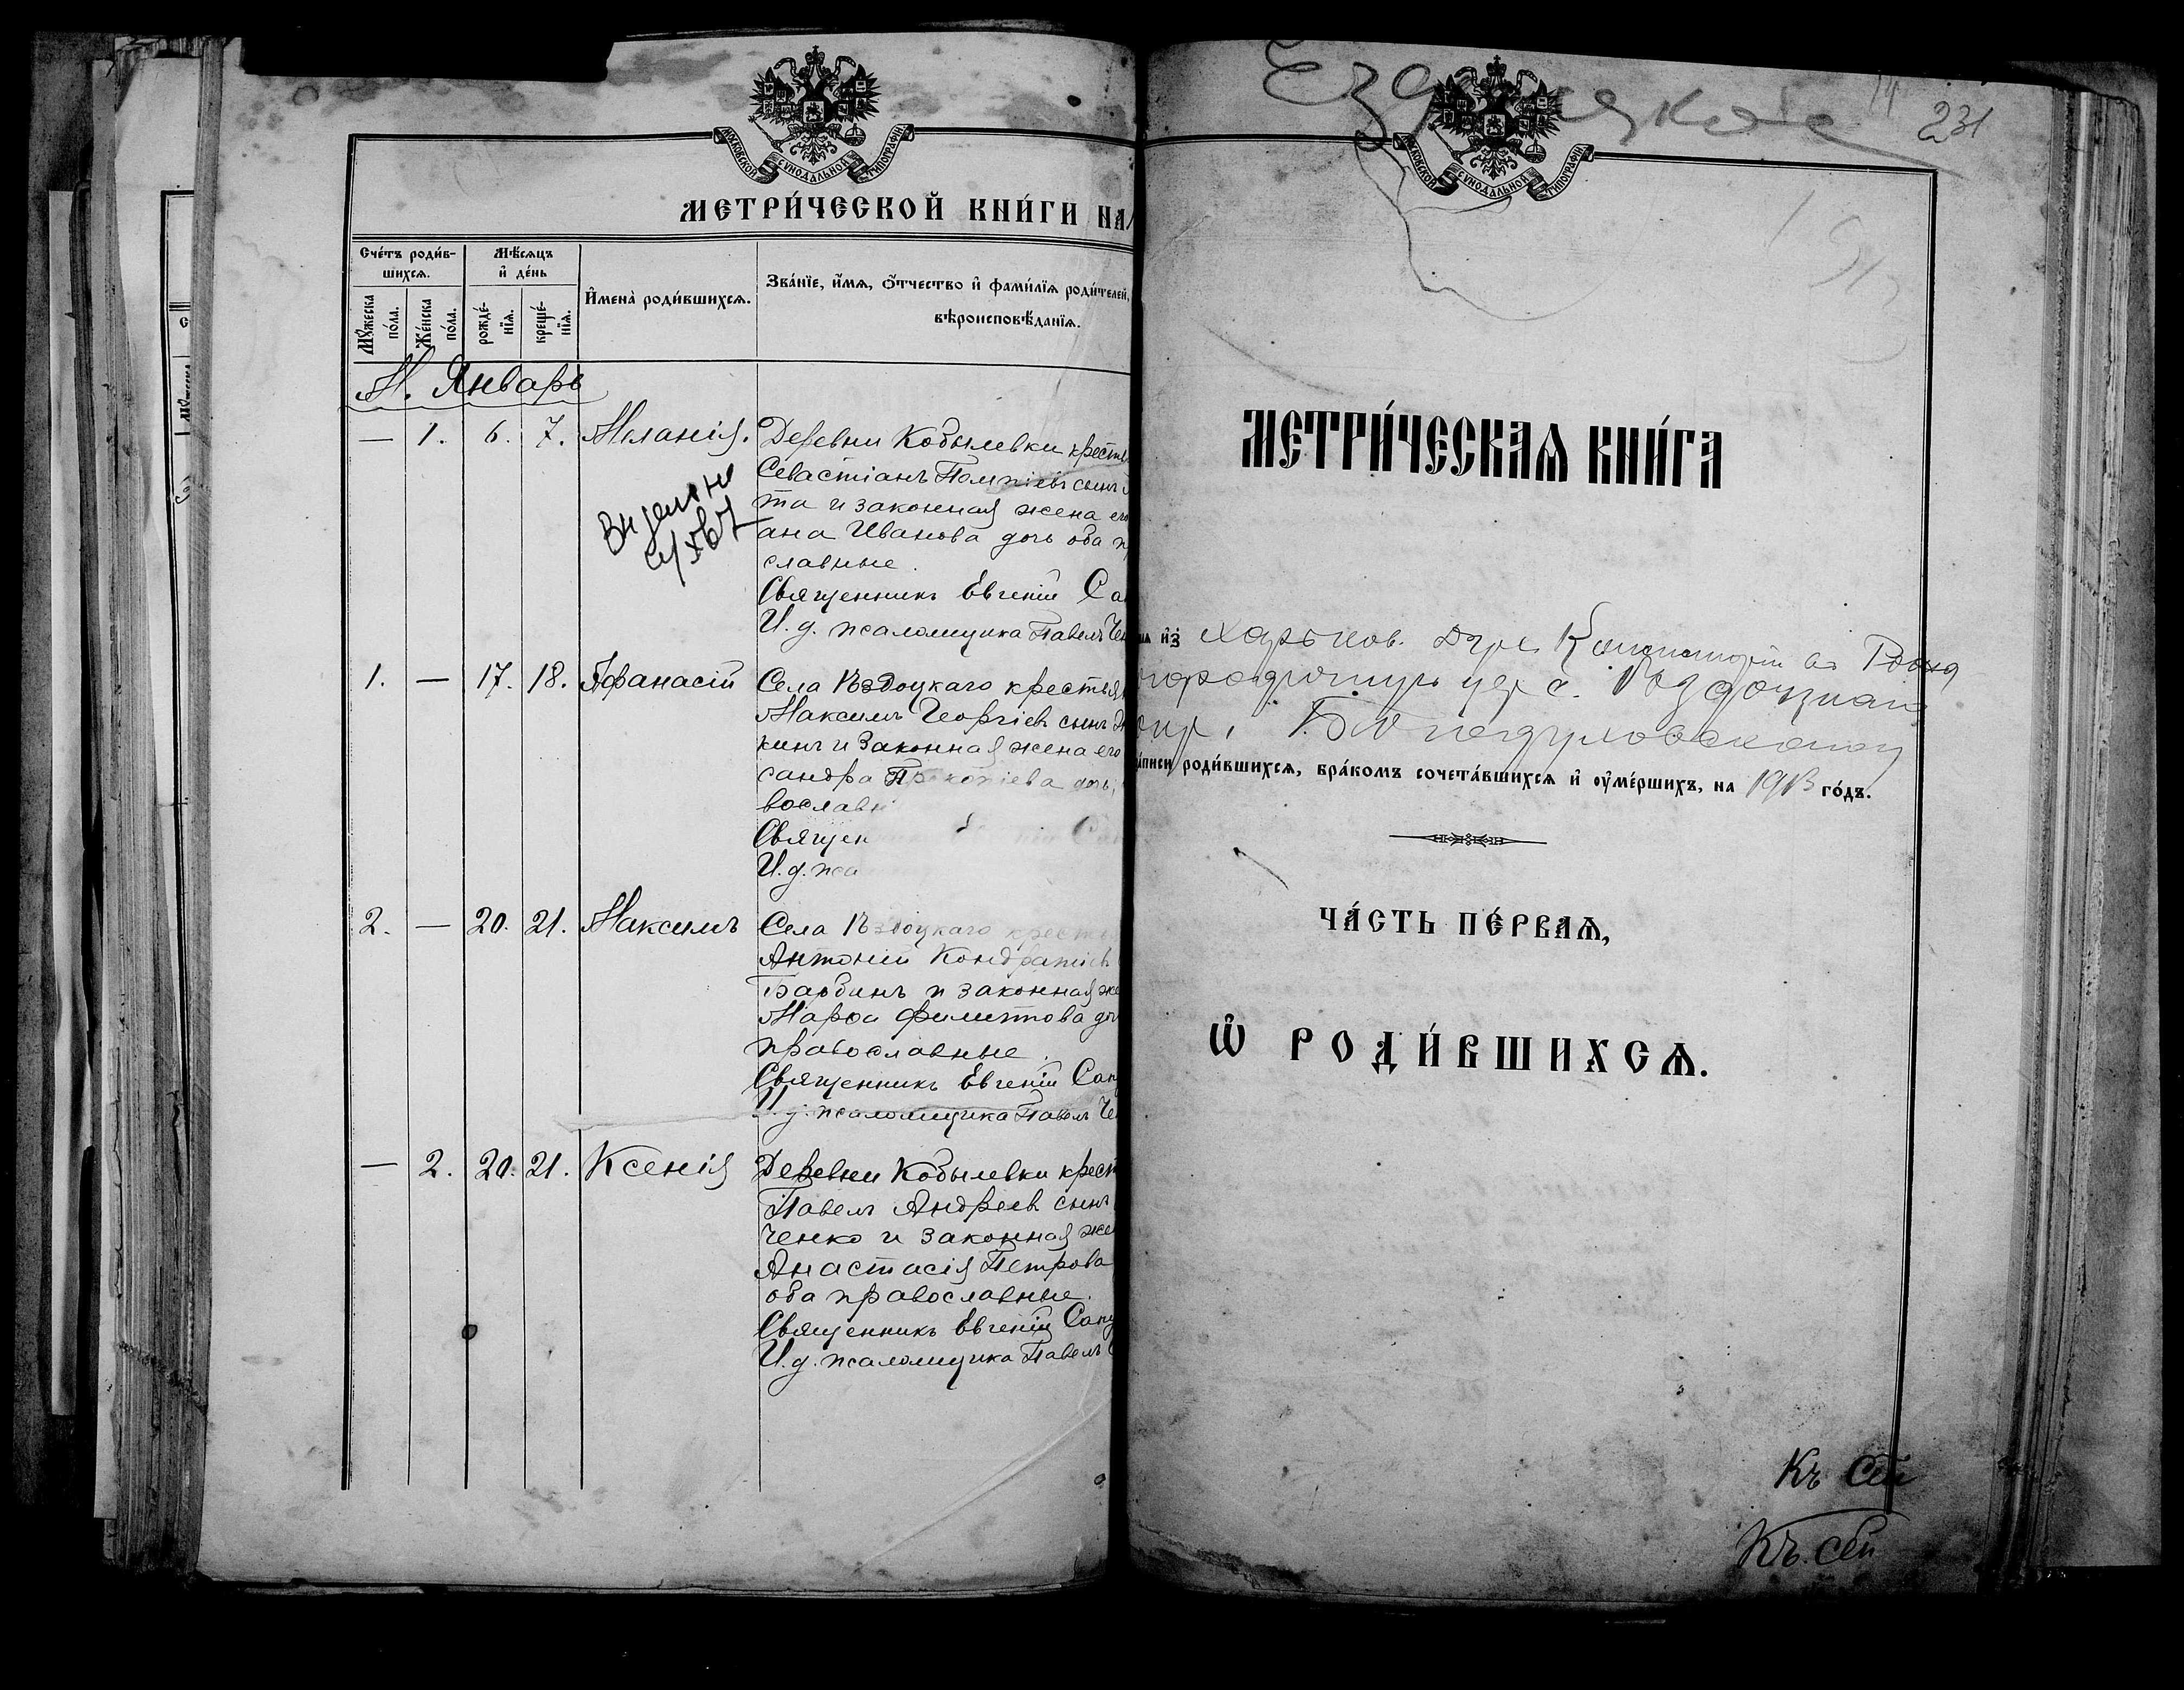 МОСКОВСКОЙ СѴНОДАЛЬНОЙ ТИПОГРАФІИ
МЕТРИ́ЧЕСКОЙ КНИ́ГИ НА
Сче́тъ роди́в-
шихсѧ.
Мѣ́сѧцъ
и҆ де́нь
И҆мена̀ роди́вшихсѧ.
Зва́нїе, и҆́мѧ, ѻ҆́тчество и҆ фами́лїѧ роди́телей,
вѣроисповѣ́данїѧ.
Мꙋ́жеска
по́ла.
Же́нска
по́ла.
рожде́-
нїѧ.
креще́-
нїѧ.
М. Январь
— 1. 6. 7. Меланія. Деревни Кобылевки кресть
Севастіанъ сынъ
та и законная жена его
ана Иванова дочь оба п
славные.
Священникъ Евгеній Са
И. д. псаломщика Павелъ Че
1. — 17. 18. Афанасій Села Ѣздоцкаго крестья
Максимъ Георгіевъ сынъ
кинъ и законная жена его
сандра Прокопіева дочь,
вославн
Священ
И. д. пса
2. — 20. 21. Максимъ Села Ѣздоцкаго кресть
Антоній Кондратіевъ
и законная же
Марѳа Филиппова до
православные.
Священникъ Евгеній Сап
И. д. псаломщика Павелъ Че
— 2. 20. 21. Ксенія Деревни Кобылевки крест
Павелъ Андреевъ сынъ
ченко и законная же
Анастасія Петрова
оба православные.
Священникъ Евгеній Сап
И. д. псаломщика Павелъ
231
МОСКОВСКОЙ СѴНОДАЛЬНОЙ ТИПОГРАФІИ
МЕТРИ́ЧЕСКАѦ КНИ́ГА
и҆з̾ Харьков. Дух. Консисторіи въ Рожд
городичную цер. с. Ѣздоцкаго
Богодуховскаго
роди́вшихсѧ, бра́комъ сочета́вшихсѧ и҆ ᲂу҆ме́ршихъ, на 1913 го́дъ.
ЧА́СТЬ ПЕ́РВАѦ,
Ѽ РОДИ́ВШИХСѦ.
Къ сей
Къ сей